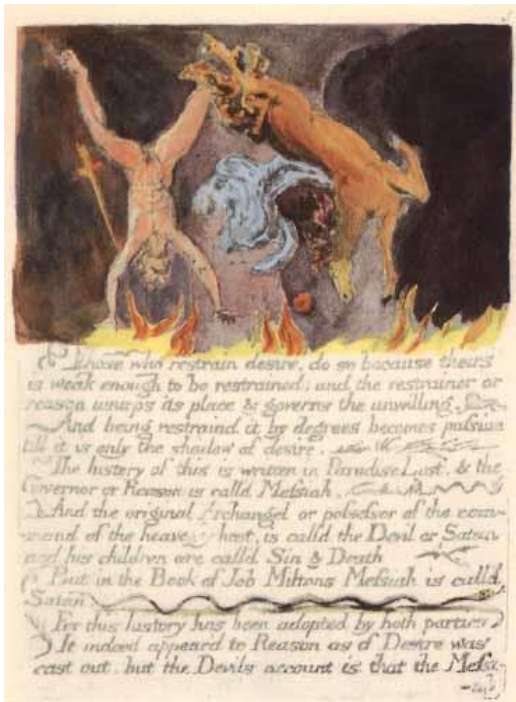 Those who restrain desire, do so because theirs
is weak enough to be restrained; and the restrainer or
reason usurps its place & governs the unwilling.
And being restraind it by degrees becomes passive
till it is only the shadow of desire.
The history of this is written in Paradise Lost, & the
Governor or Reason is call'd Messiah.
And the original Archangel or possessor of the com-
mand of the heavenly host, is calld the Devil or Satan
and his children are call'd Sin & Death
But in the Book of Job Miltons Messiah is call'd
Satan.
For this history has been adopted by both parties
It indeed appear'd to Reason as if Desire was
cast out, but the Devils account is that the Messi-
-ah